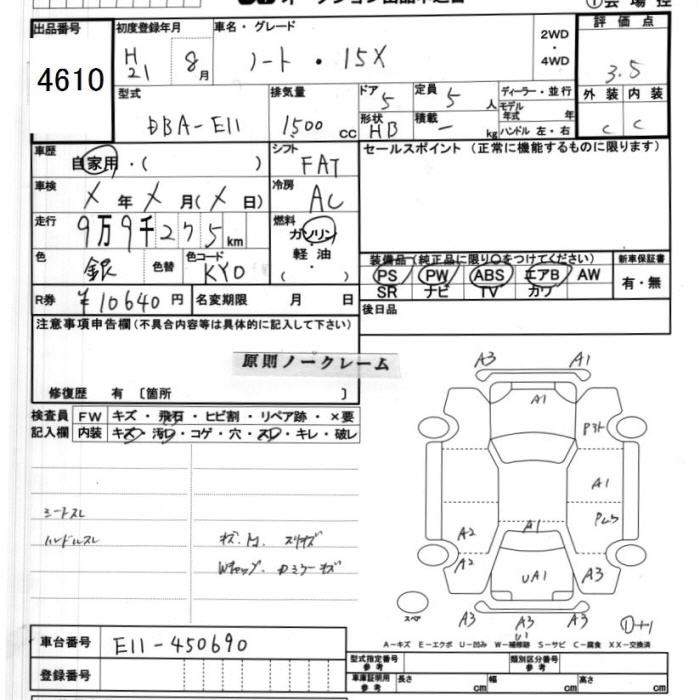 出品番号 初度登録年月 車名・グレード 2WD・4WD 評価点
4610 H21 8月 ノート・15X 3.5
型式 排気量 ドア 5 定員 5人 ディーラー・並行 外装 内装
DBA-E11 1500cc 形状 HB 積載 - kg モデル年式 年 C C
ハンドル 左・右
車歴 シフト セールスポイント(正常に機能するものに限ります)
自家用・( ) FAT
車検 X年X月(X日) 冷房 AC
走行 9万9千275km 燃料 ガソリン
色 銀 色替 色コード KY0 軽油・( )
装備品(純正品に限り○をつけてください) 新車保証書
PS PW ABS エアB AW 有・無
SR ナビ TV カワ
R券 ¥10640円 名変期限 月 日 後日品
注意事項申告欄(不具合内容等は具体的に記入して下さい)
原則ノークレーム
修復歴 有〔箇所 〕
検査員 FW キズ・飛石・ヒビ割・リペア跡・×要
記入欄 内装 キズ・汚レ・コゲ・穴・スレ・キレ・破レ
シートスレ
ハンドルスレ
A3 A1
A1
A1
A2 A1
A2 UA1 A3
スペア A3 A3 A3
車台番号 E11-450690
A-キズ E-エクボ U-凹み W-補修跡 S-サビ C-腐食 XX-交換済
登録番号 型式指定番号 参考 類別区分番号 参考
車庫証明用 参考 長さ cm 幅 cm 高さ cm